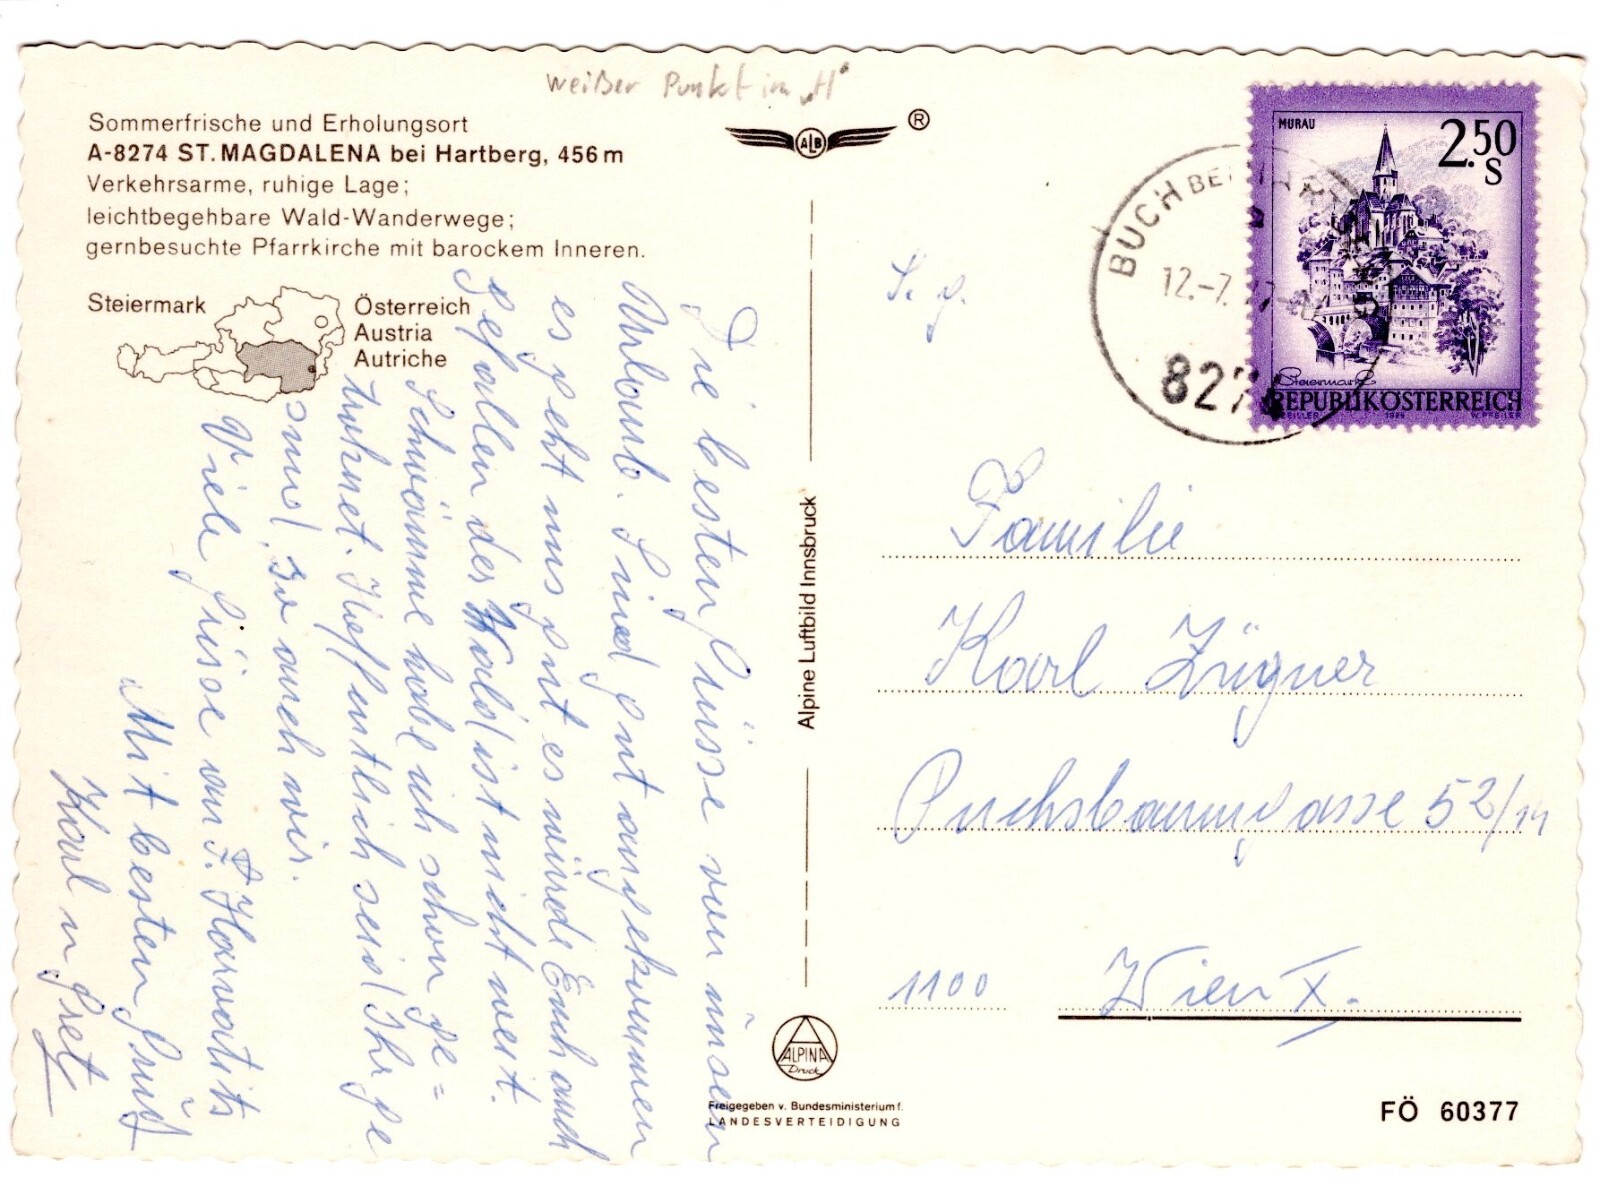 weißer Punkt im „H"
Sommerfrische und Erholungsort
A-8274 ST. MAGDALENA bei Hartberg, 456 m
Verkehrsarme, ruhige Lage;
leichtbegehbare Wald-Wanderwege;
gernbesuchte Pfarrkirche mit barockem Inneren.
Steiermark
Österreich
Austria
Autriche
ALB
®
Die besten Grüsse von unsern
Urlaub. Sind gut angekommen
es geht uns gut es würde Euch auch
gefallen der Wald ist nicht weit.
Schwämme habe ich schon ge=
truknet. Hoffentlich seid Ihr ge
sund, so auch wir.
Viele Grüsse an F. Horvatits
Mit besten Gruß
Karl u Gretl
Alpine Luftbild Innsbruck
ALPINA
Druck
Freigegeben v. Bundesministerium f.
LANDESVERTEIDIGUNG
S. g.
BUCH BEI HARTBERG
12.-7. 77
8274
MURAU
2.50
S
Steiermark
REPUBLIK ÖSTERREICH
ZEILLER 1974 W.PFEILER
Familie
Karl Zügner
Puchsbaumgasse 52/14
1100 Wien X.
FÖ 60377